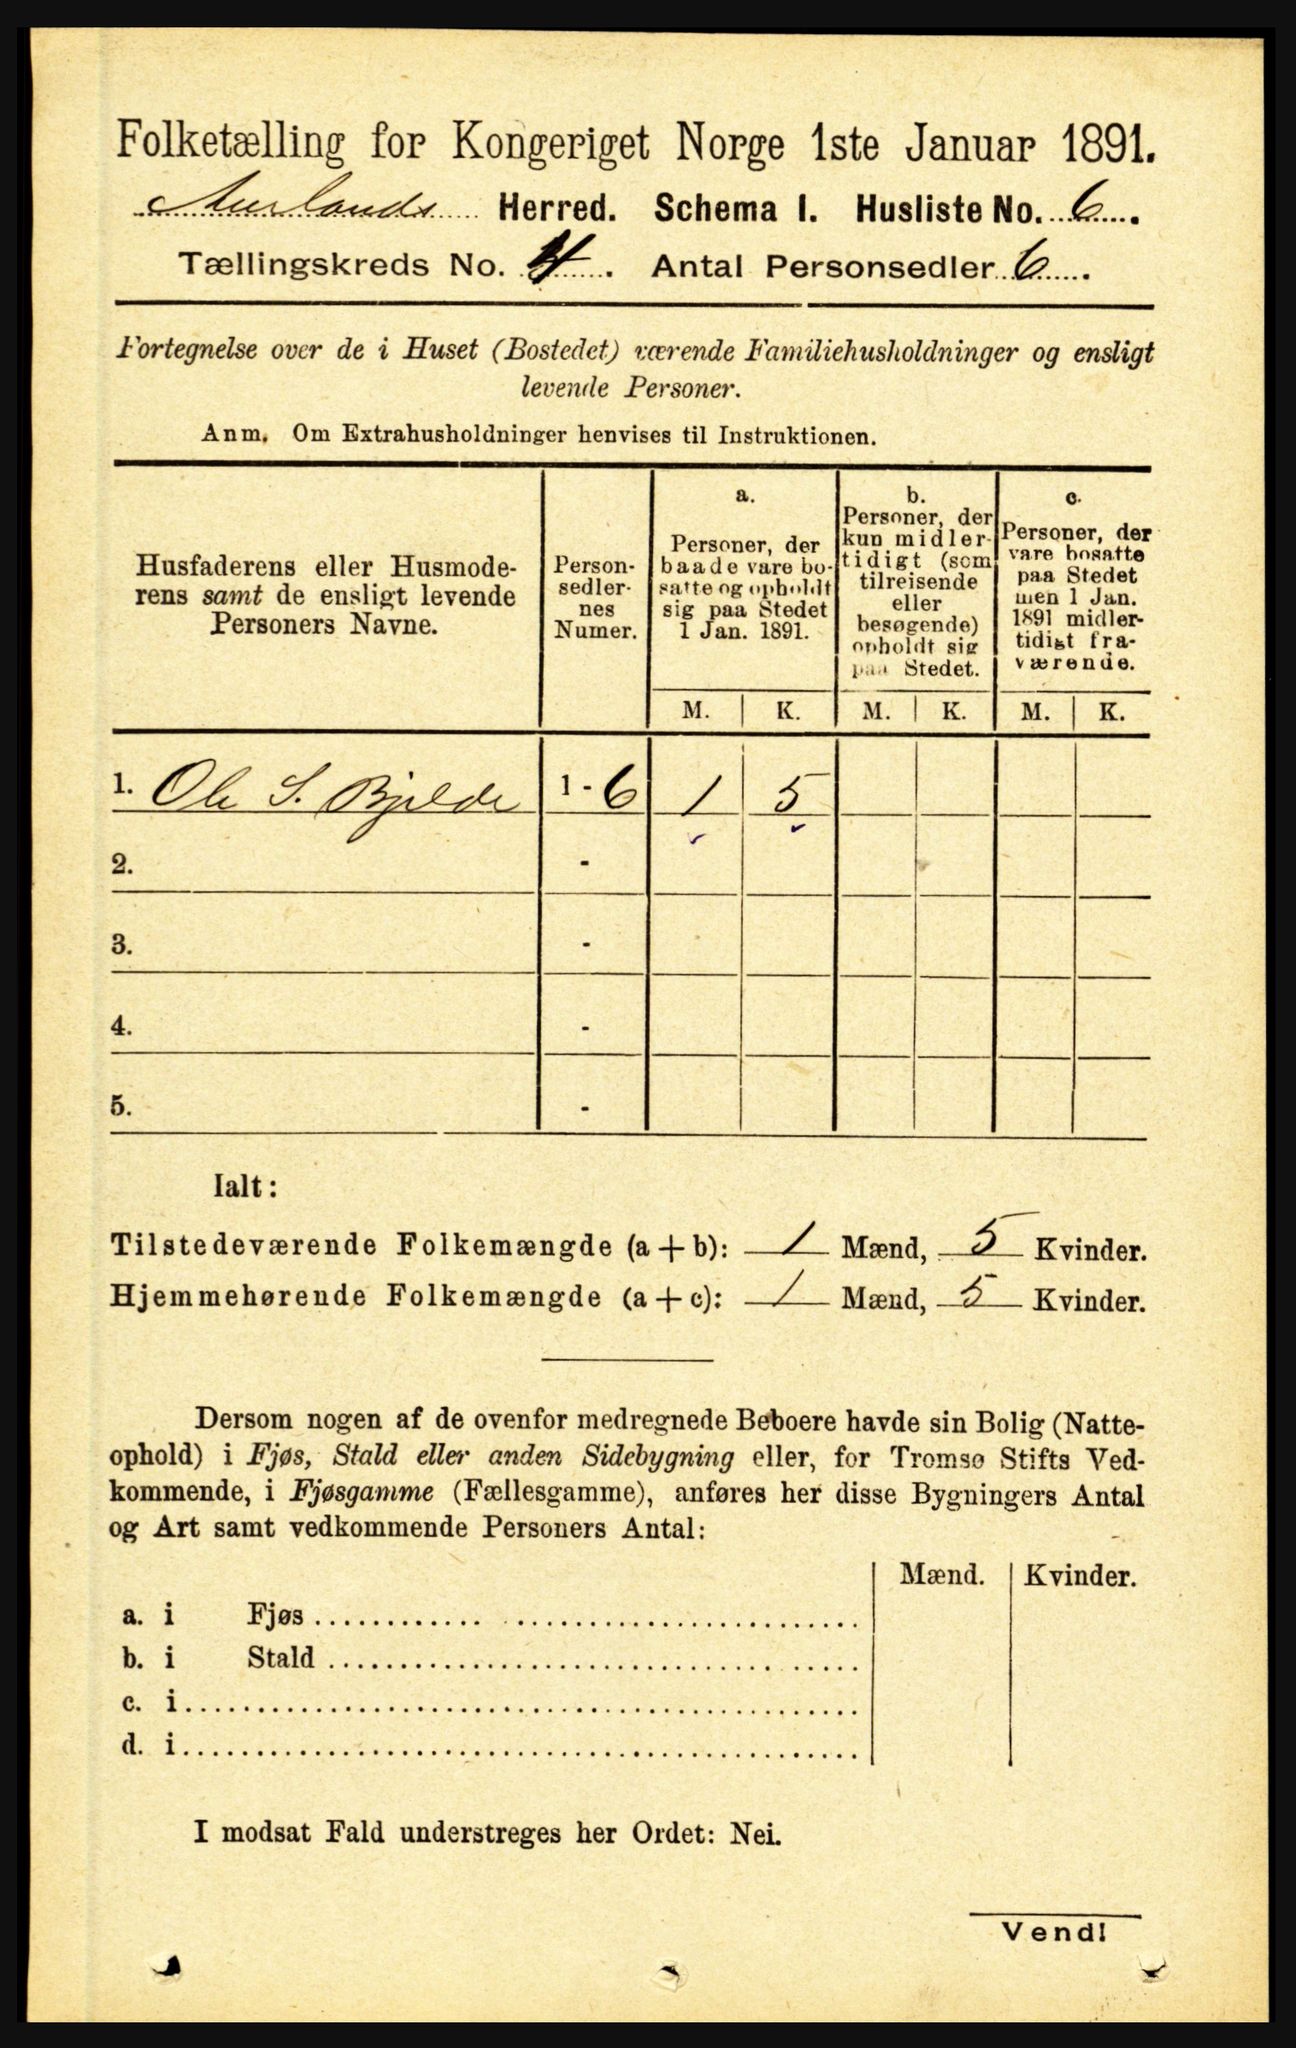 Folketælling for Kongeriget Norge 1ste Januar 1891.
Aurlands Herred. Schema I. Husliste No. 6.
Tællingskreds No. 4. Antal Personsedler 6.
Fortegnelse over de i Huset (Bostedet) værende Familiehusholdninger og ensligt
levende Personer.
Anm. Om Extrahusholdninger henvises til Instruktionen.
Husfaderens eller Husmode-
rens samt de ensligt levende
Personers Navne.
Person-
sedler-
nes
Numer.
a.
Personer, der
baade vare bo-
satte og opholdt
sig paa Stedet
1 Jan. 1891.
b.
Personer, der
kun midler-
tidigt (som
tilreisende
eller
besøgende)
opholdt sig
paa Stedet.
c.
Personer, der
vare bosatte
paa Stedet
men 1 Jan.
1891 midler-
tidigt fra-
værende.
M. K. M. K. M. K.
1. Ole S. Bjelde 1 - 6 1 5
2. -
3. -
4. -
5. -
Ialt:
Tilstedeværende Folkemængde (a + b): 1 Mænd, 5 Kvinder.
Hjemmehørende Folkemængde (a + c): 1 Mænd, 5 Kvinder.
Dersom nogen af de ovenfor medregnede Beboere havde sin Bolig (Natte-
ophold) i Fjøs, Stald eller anden Sidebygning eller, for Tromsø Stifts Ved-
kommende, i Fjøsgamme (Fællesgamme), anføres her disse Bygningers Antal
og Art samt vedkommende Personers Antal:
Mænd. Kvinder.
a. i Fjøs
b. i Stald
c. i
d. i
I modsat Fald understreges her Ordet: Nei.
Vend!